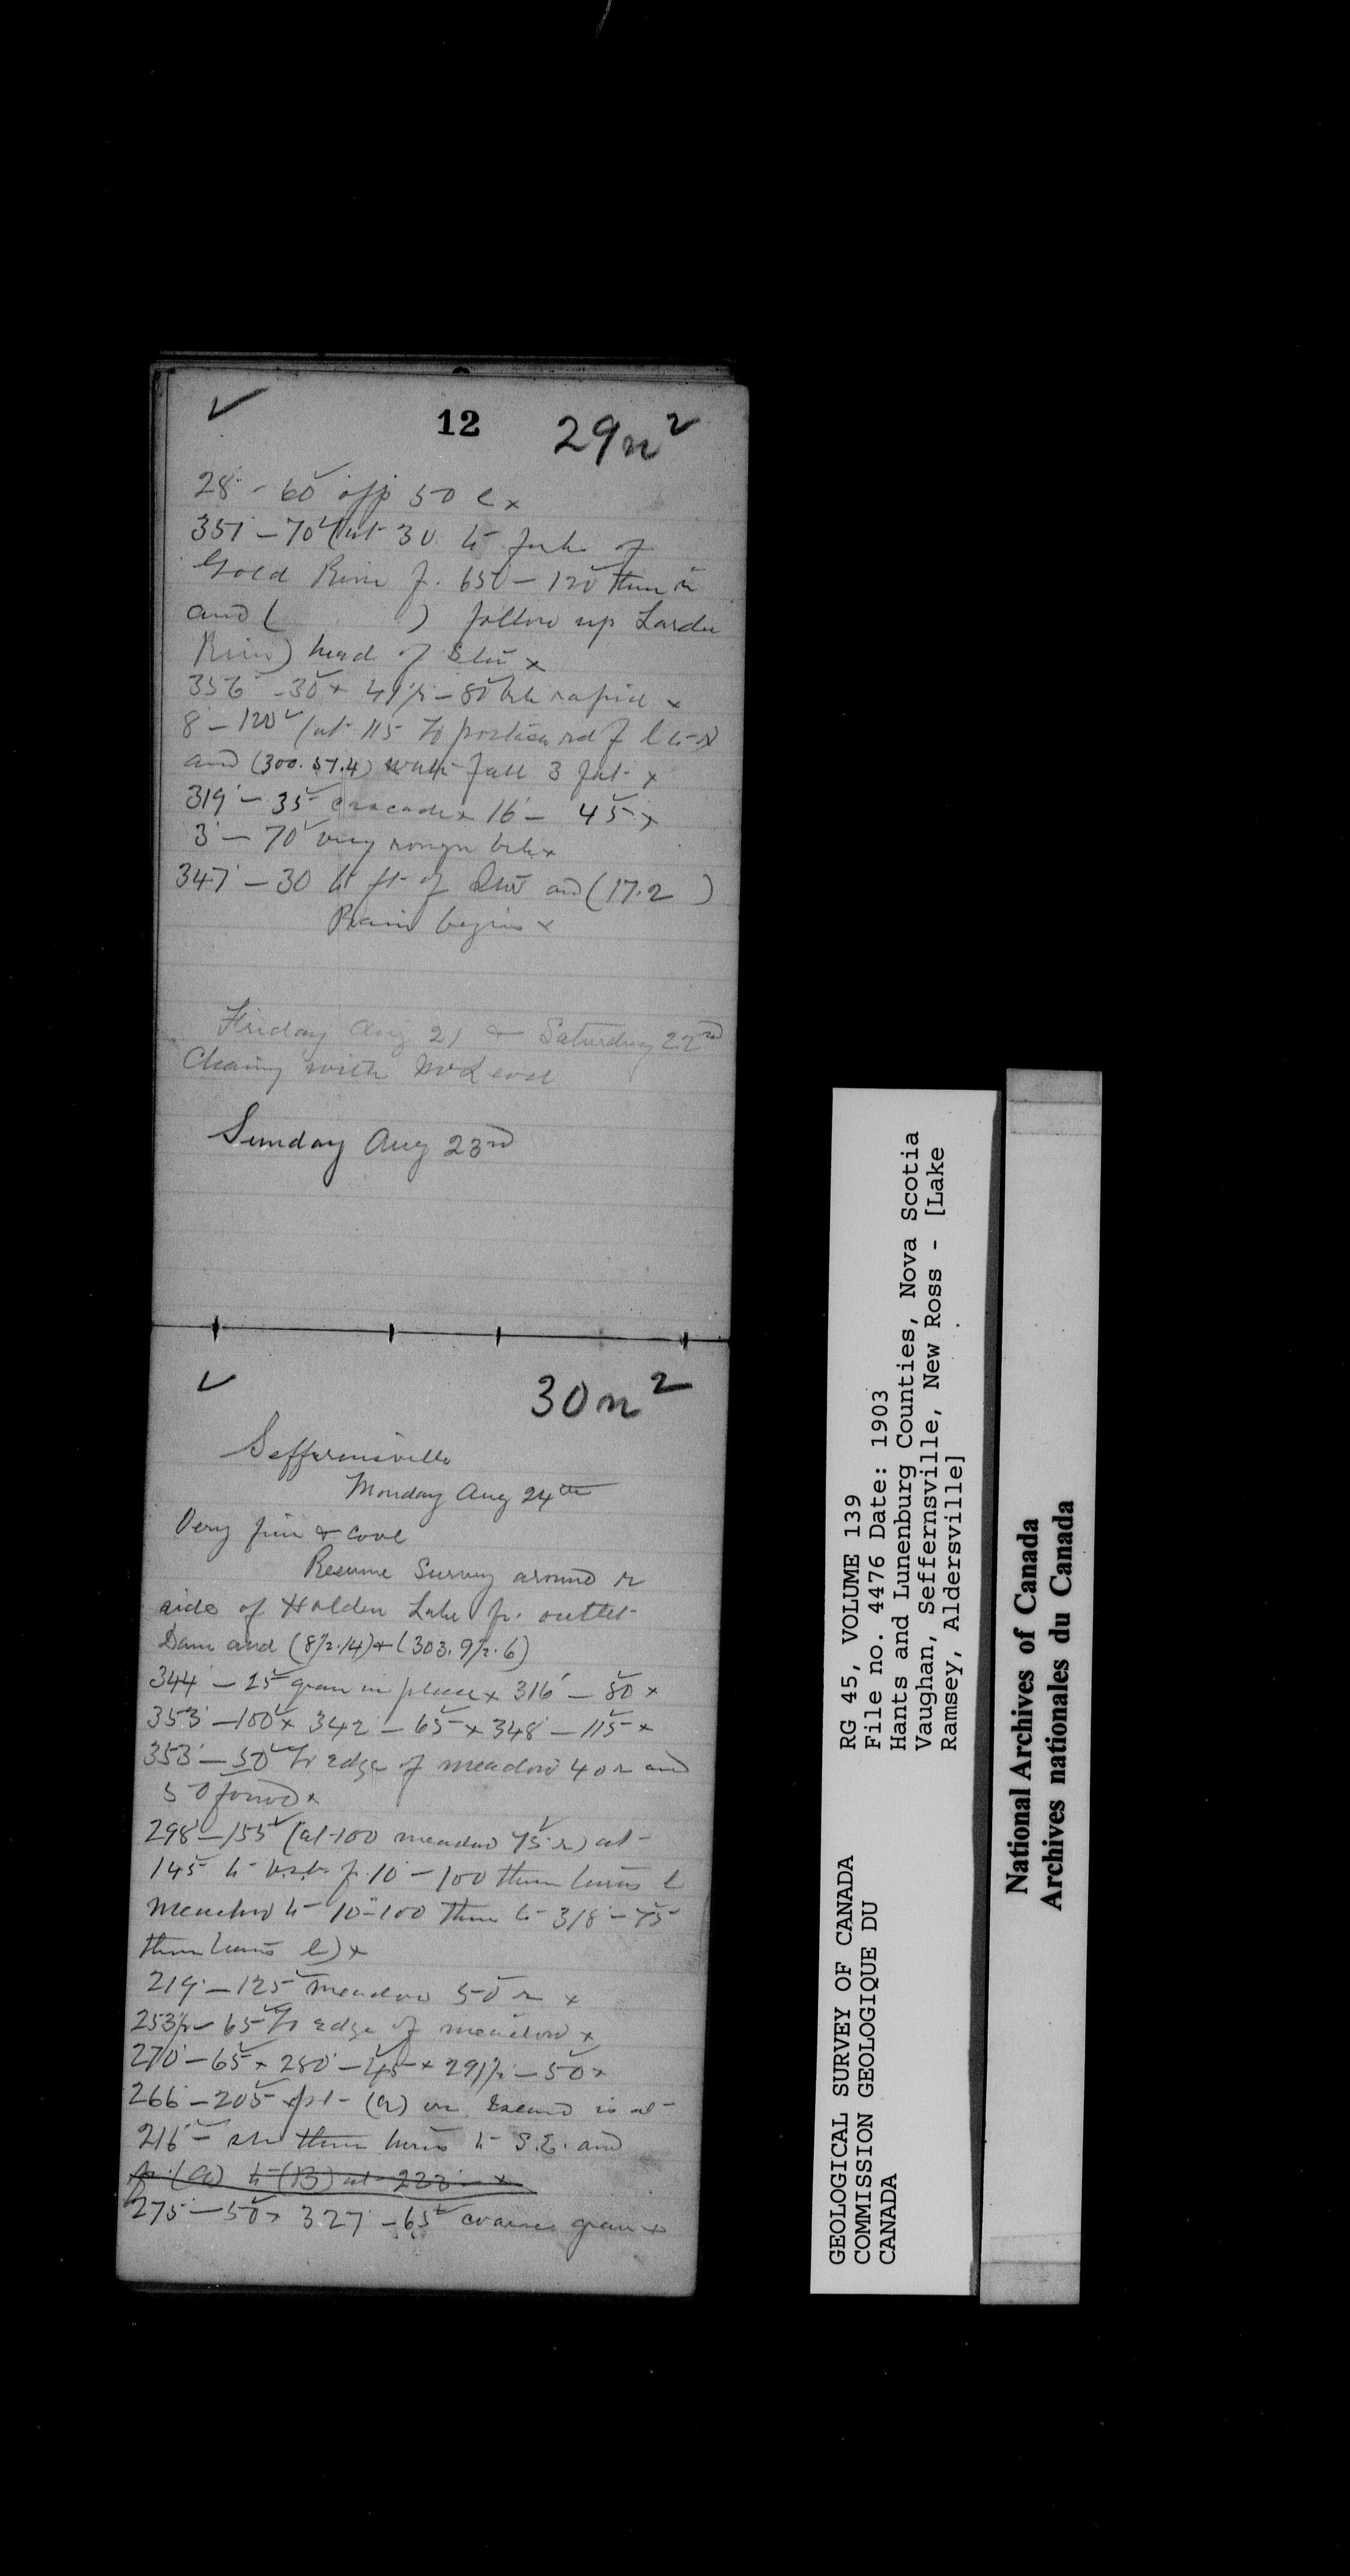 ✓ 12 29n²
28 - 60 opp 50 l x
351 - 70 (at 30 to forks of
Gold River f. 65 - 120 then
and ( ) follow up Larder
River) head of x
356 - 30 x - 80 rapid x
8 - 120 (at 115 to rd f l
and (300.57.4) fall 3 x
319 - 35 cascade x 16 - 45 x
3 - 70 very rough x
347 - 30 to ft of and (17.2 )
Rain begins x
Friday Aug 21 & Saturday 22nd
with McLeod
Sunday Aug 23rd
✓ 30n²
Seffernsville
Monday Aug 24th
Very fine & cool
Resume Survey around r
side of Holden Lake fr. outlet
Dam and (8½.14) + (303.9½.6)
344 - 25 gran in place x 316 - 80 x
353 - 100 x 342 - 65 x 348 - 115 x
353 - 50 to edge of meadow 40 r and
50 forwd x
298 - 155 (at 100 meadow 75 r) at
145 to f. 10 - 100 then turns l
meadow to 10 - 100 then to 318 - 75
then turns l) x
219 - 125 meadow 50 r x
253½ - 65 to edge of meadow x
270 - 65 x 280 - 45 x 291½ - 50 x
266 - 205 pt (a) on Island is at
216 then turns to S.E. and
fr. (a) to (B) at 223 x
275 - 50 x 327 - 65 coarse gran x
GEOLOGICAL SURVEY OF CANADA
COMMISSION GEOLOGIQUE DU
CANADA
RG 45, VOLUME 139
File no. 4476 Date: 1903
Hants and Lunenburg Counties, Nova Scotia
Vaughan, Seffernsville, New Ross - [Lake
Ramsey, Aldersville]
National Archives of Canada
Archives nationales du Canada